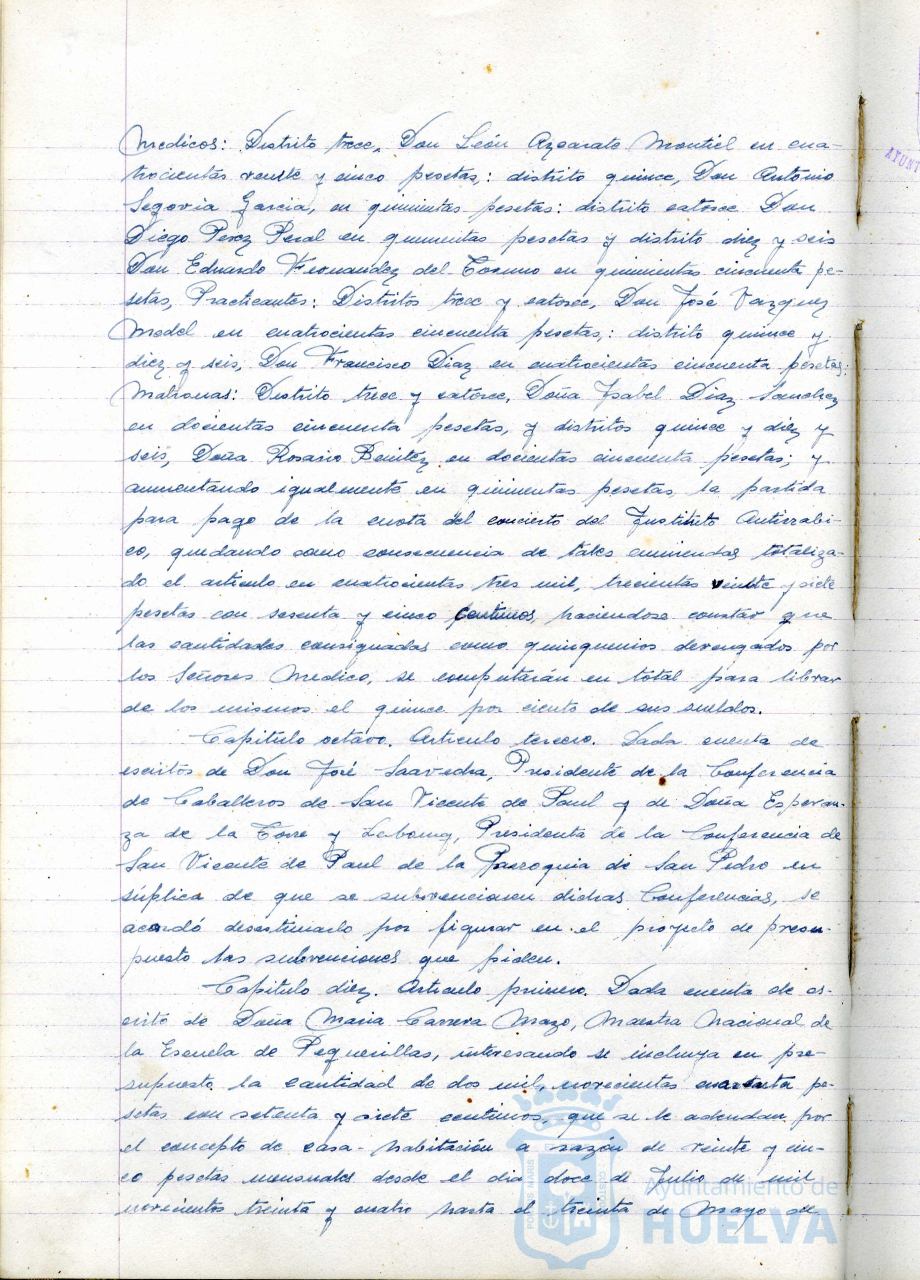 Medicos: Distrito trece, Don León Azcarate Montiel en cua-
trocientas veinte y cinco pesetas,: distrito quince, Don Antonio
Segovia Garcia, en quinientas pesetas: distrito catorce Don
Diego Perez Peral en quinientas pesetas y distrito diez y seis
Don Eduardo Fernandez del Torno en quinientas cincuenta pe-
setas, Practicantes: Distritos trece y catorce, Don José Vazquez
Medel en cuatrocientas cincuenta pesetas,: distrito quince y
diez y seis, Don Francisco Diaz en cuatrocientas cincuenta pesetas:
Matronas: Distrito trece y catorce, Doña Ysabel Diaz Sanchez
en docientas cincuenta pesetas, y distritos quince y diez y
seis, Doña Rosario Benitez en docientas cincuenta pesetas; y
aumentando igualmente en quinientas pesetas la partida
para pago de la cuota del concierto del Ynstituto Antirrabi-
co, quedando como consecuencia de tales enmiendas totaliza-
do el articulo en cuatrocientas tres mil, trecientas veinte y siete
pesetas con sesenta y cinco centimos, haciendose constar que
las cantidades consignadas como quinquenios devengados por
los Señores Medico, se computarán en total para librar
de los mismos el quince por ciento de sus sueldos.
Capitulo octavo. Articulo tercero. Dada cuenta de
escritos de Don José Saavedra, Presidente de la Conferencia
de Caballeros de San Vicente de Paul y de Doña Esperan-
za de la Torre y Presidenta de la Conferencia de
San Vicente de Paul de la Parroquia de San Pedro en
súplica de que se subvencionen dichas Conferencias, se
acordó desestimarlo por figurar en el proyecto de presu-
puesto las subvenciones que piden.
Capitulo diez. Articulo primero. Dada cuenta de es-
crito de Doña Maria Carrera Mazo, Maestra Nacional de
la Escuela de Pequerillas, interesando se incluya en pre-
supuesto la cantidad de dos mil, novecientas cuarenta pe-
setas con setenta y siete centimos, que se le adeudan por
el concepto de casa-habitación a razón de veinte y cin-
co pesetas mensuales desde el dia doce de Julio de mil
novecientos treinta y cuatro hasta el treinta de Mayo de
AYUNT
Ayuntamiento de
HUELVA